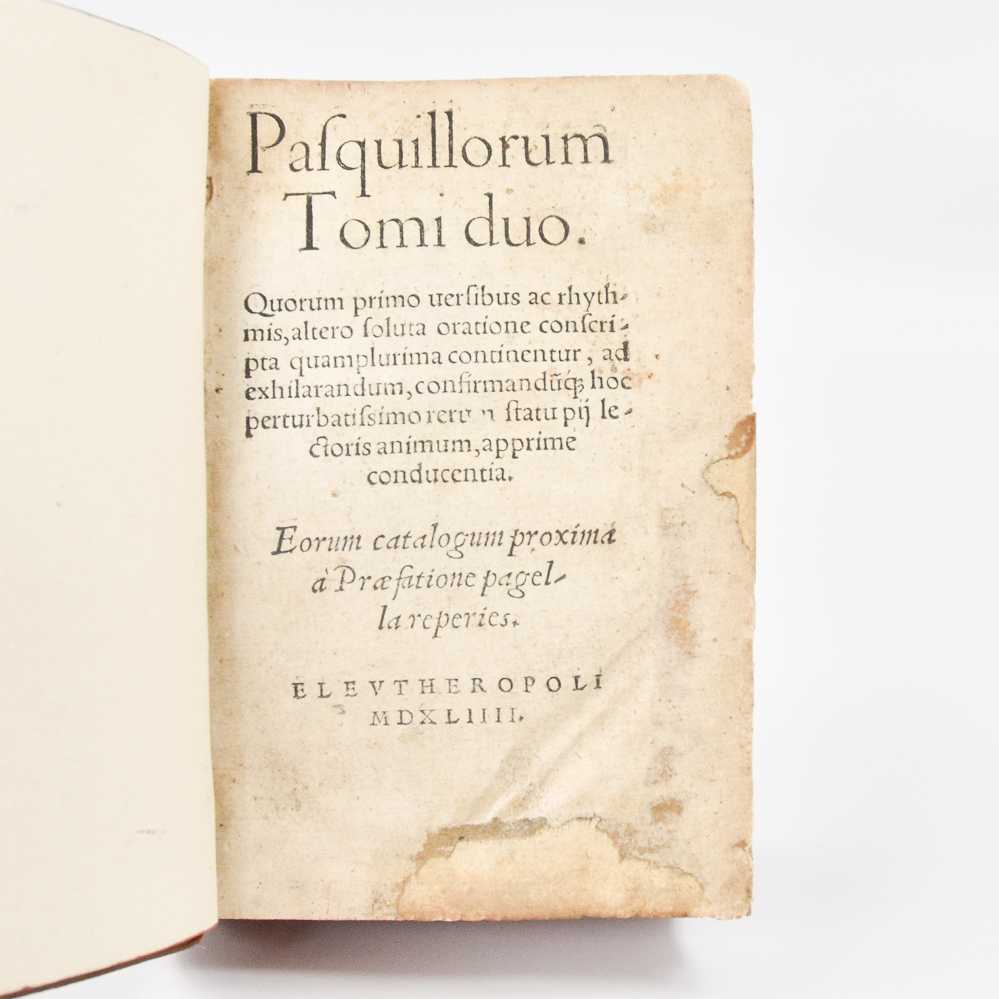 Paſquillorum
Tomi duo.
Quorum primo uerſibus ac rhyth-
mis, altero ſoluta oratione conſcri-
pta quamplurima continentur, ad
exhilarandum, confirmandũq́; hoc
perturbatiſsimo rerum ſtatu pij le-
ctoris animum, apprime
conducentia.
Eorum catalogum proxima
à Præfatione pagel-
la reperies.
ELEVTHEROPOLI
MDXLIIII.